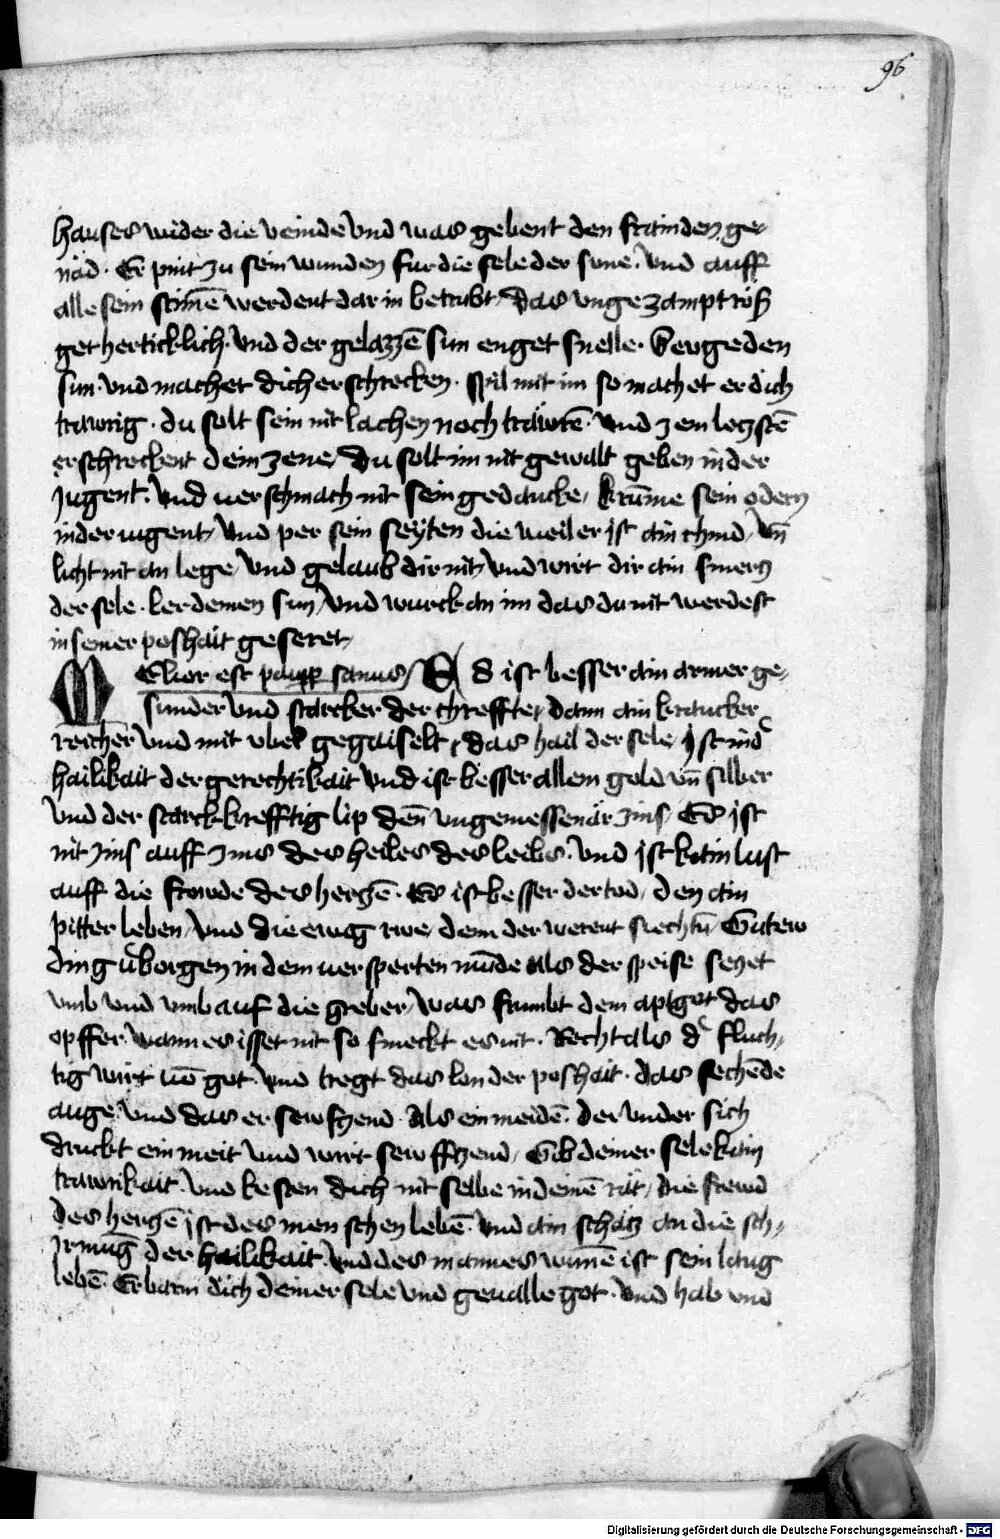 96
hauses wider die veinde vnd was gebent den frainden ge-
näd. Er pint zu sein wunden fur die sele der sune. vnd auff
alle sein stimē werdent dar in betrubt. das vngezampt röß
get herticklich. vnd der gelazzē sun enget snelle. Seugeden
sun. vnd machet dich erschrecken. spil mit im so machet er dich
trawrig. du solt sein nit lachen noch trawrē. vnd zem leczstē
erschreckent dein zene/ du solt im nit gewalt geben in der
Jugent. vnd uerschmach nit sein gedancke/ krūme sein odern
in der iugent/ vnd per sein seyten die weil er jst ain chind/ vn̄
licht nit an lege/ vnd gelaub dir nit/ vnd wirt dir ain smercz
der sele. ler deinen sun/ vnd wurck an im das du nit werdest
in seiner poshait geseret/
MElior est paup sanus/ Es ist besser ain armer ge-
sunder vnd starcker der chreffte/ dann ain krancker
reichēr vnd mit vbel gegaiselt/ das hail der sele jst in d
hailikait der gerechtikait vnd ist besser allem gold vn̄ silber
vnd der starck krefftig lip denn vngemessenär zins/ Es jst
nit zins auff zins des heiles des leibs. vnd jst kein lust
auff die frowde des herczē. Es ist besser der tod/ den ain
pitter leben/ vnd die ewig rwe/ denn der werent siechtū/ Gutew
ding v̈borgen in dem uersperten mūde als der speise seczet
vmb vnd vmb auf die greber/ was frumbt dem aptgot das
opffer. wann es isset nit so smeckt es nit. Recht als d fluch-
tig wirt uō got. vnd tregt das lon der poshait. das sechēde
auge. vnd das er sewfczend. Als ein meidē. der vnder sich
druckt ein meit vnd wirt sewffczend/ Gib deiner sele kain
trawrikait. vnd kesten dich nit selbe in deinē rät/ die frewd
des herczē jst des menschen lebē. vnd ain schacz an die sch-
Jrmūg der hailikait. vnd des mannes wunē ist sein lang
lebē. Erbarm dich deiner sele vnd geualle got. vnd hab vnd
Digitalisierung gefördert durch die Deutsche Forschungsgemeinschaft - DFG